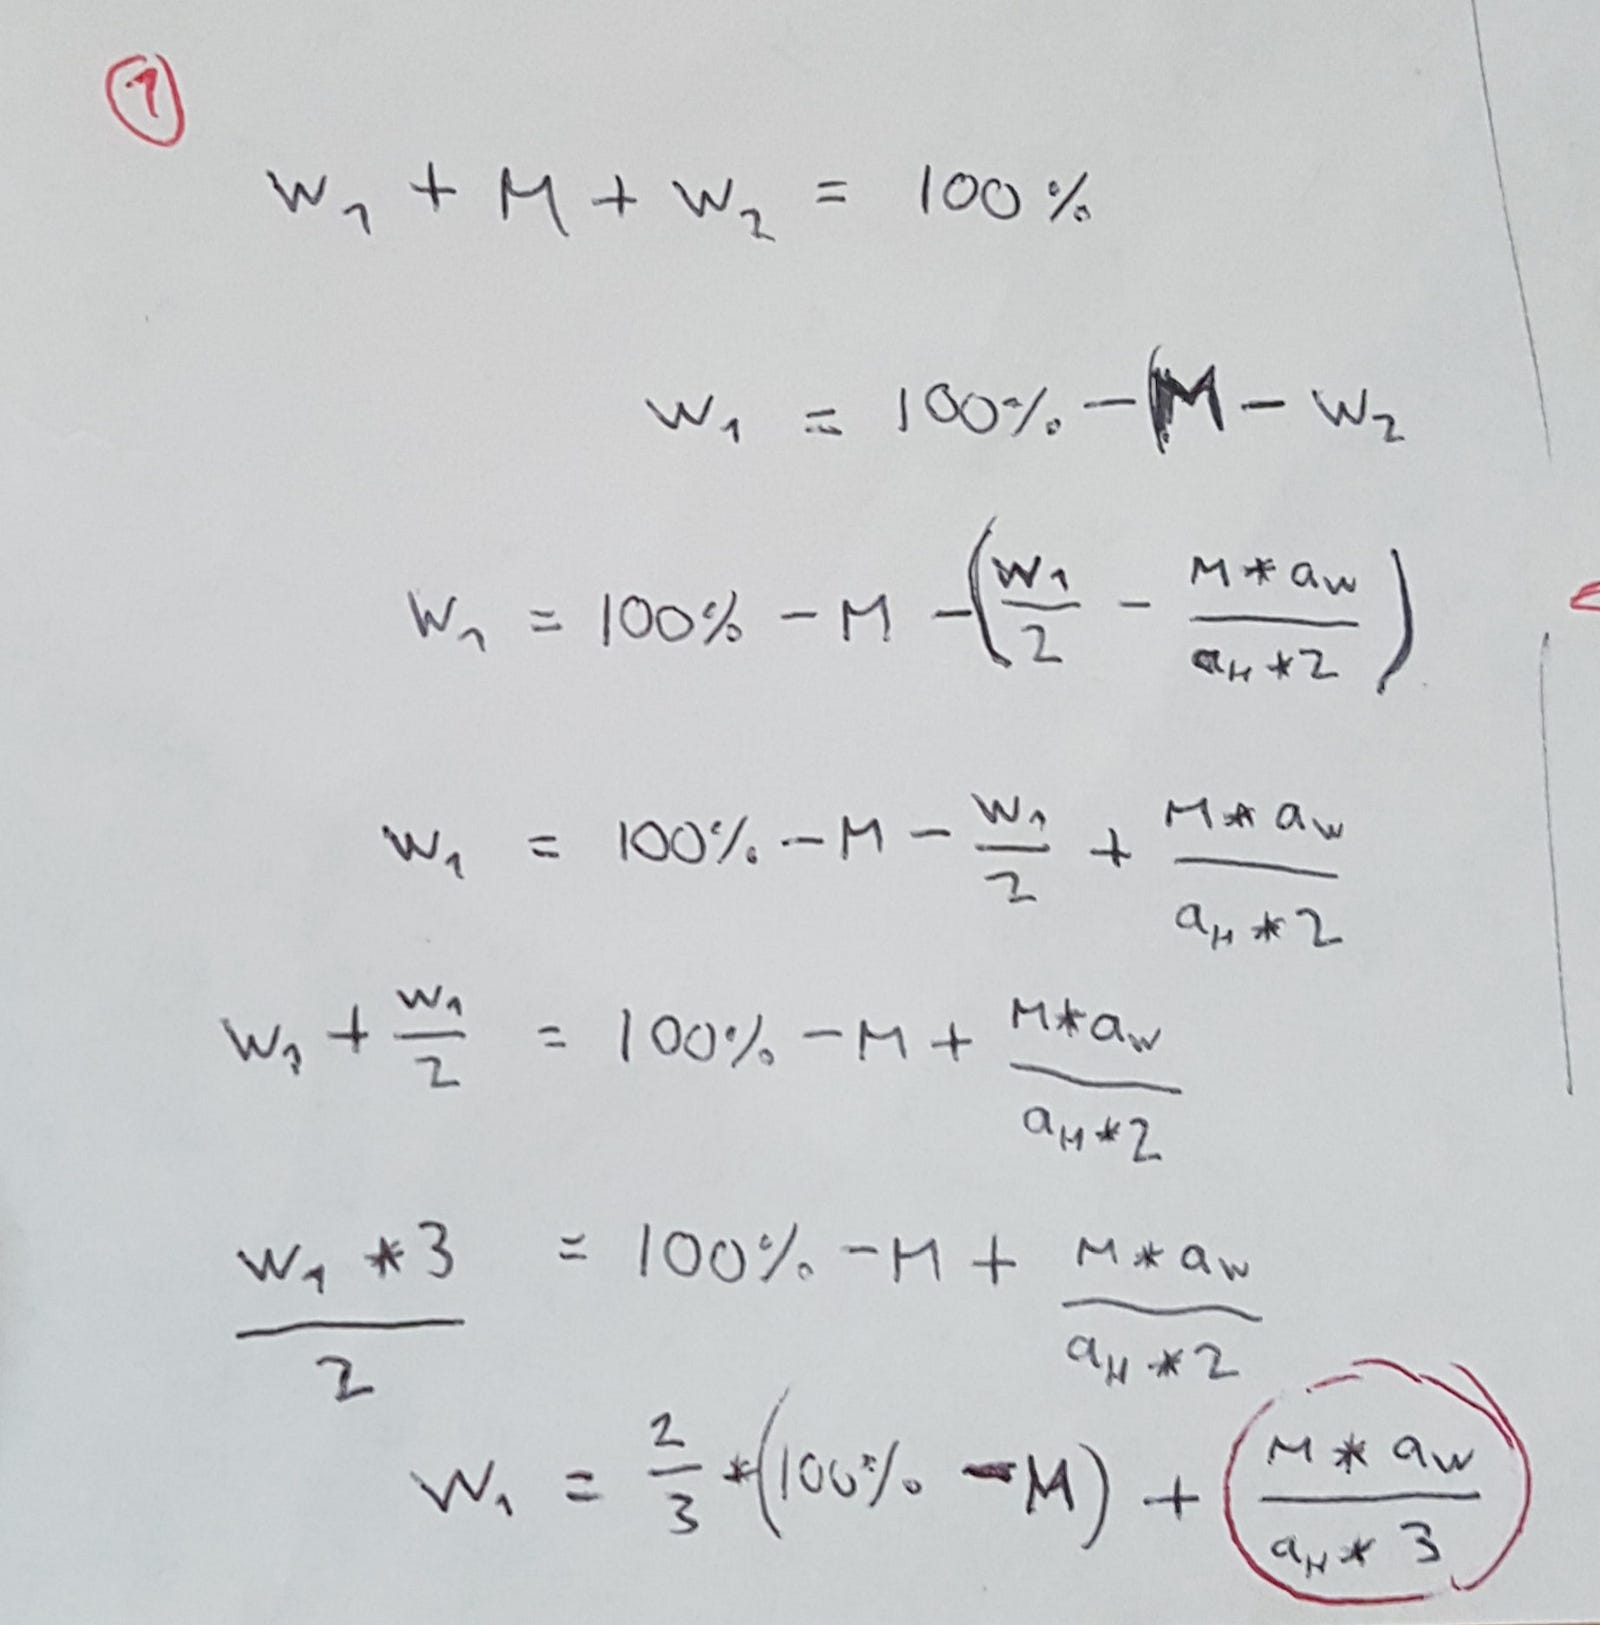 1
W₁ + M + W₂ = 100%
W₁ = 100% - M - W₂
W₁ = 100% - M - (W₁/2 - M*a_W/a_M*2)
W₁ = 100% - M - W₁/2 + M*a_W/a_M*2
W₁ + W₁/2 = 100% - M + M*a_W/a_M*2
W₁*3/2 = 100% - M + M*a_W/a_M*2
W₁ = 2/3*(100% - M) + M*a_W/a_M*3